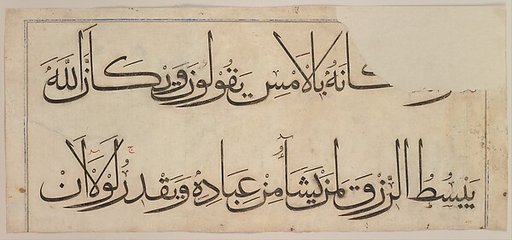 مَكَانَهُ بِالْاَمْسِ يَقُولُونَ وَيْكَاَنَّ اللَّهَ
يَبْسُطُ الرِّزْقَ لِمَنْ يَشَآءُ مِنْ عِبَادِهِ وَيَقْدِرُ لَوْلَا اَنْ